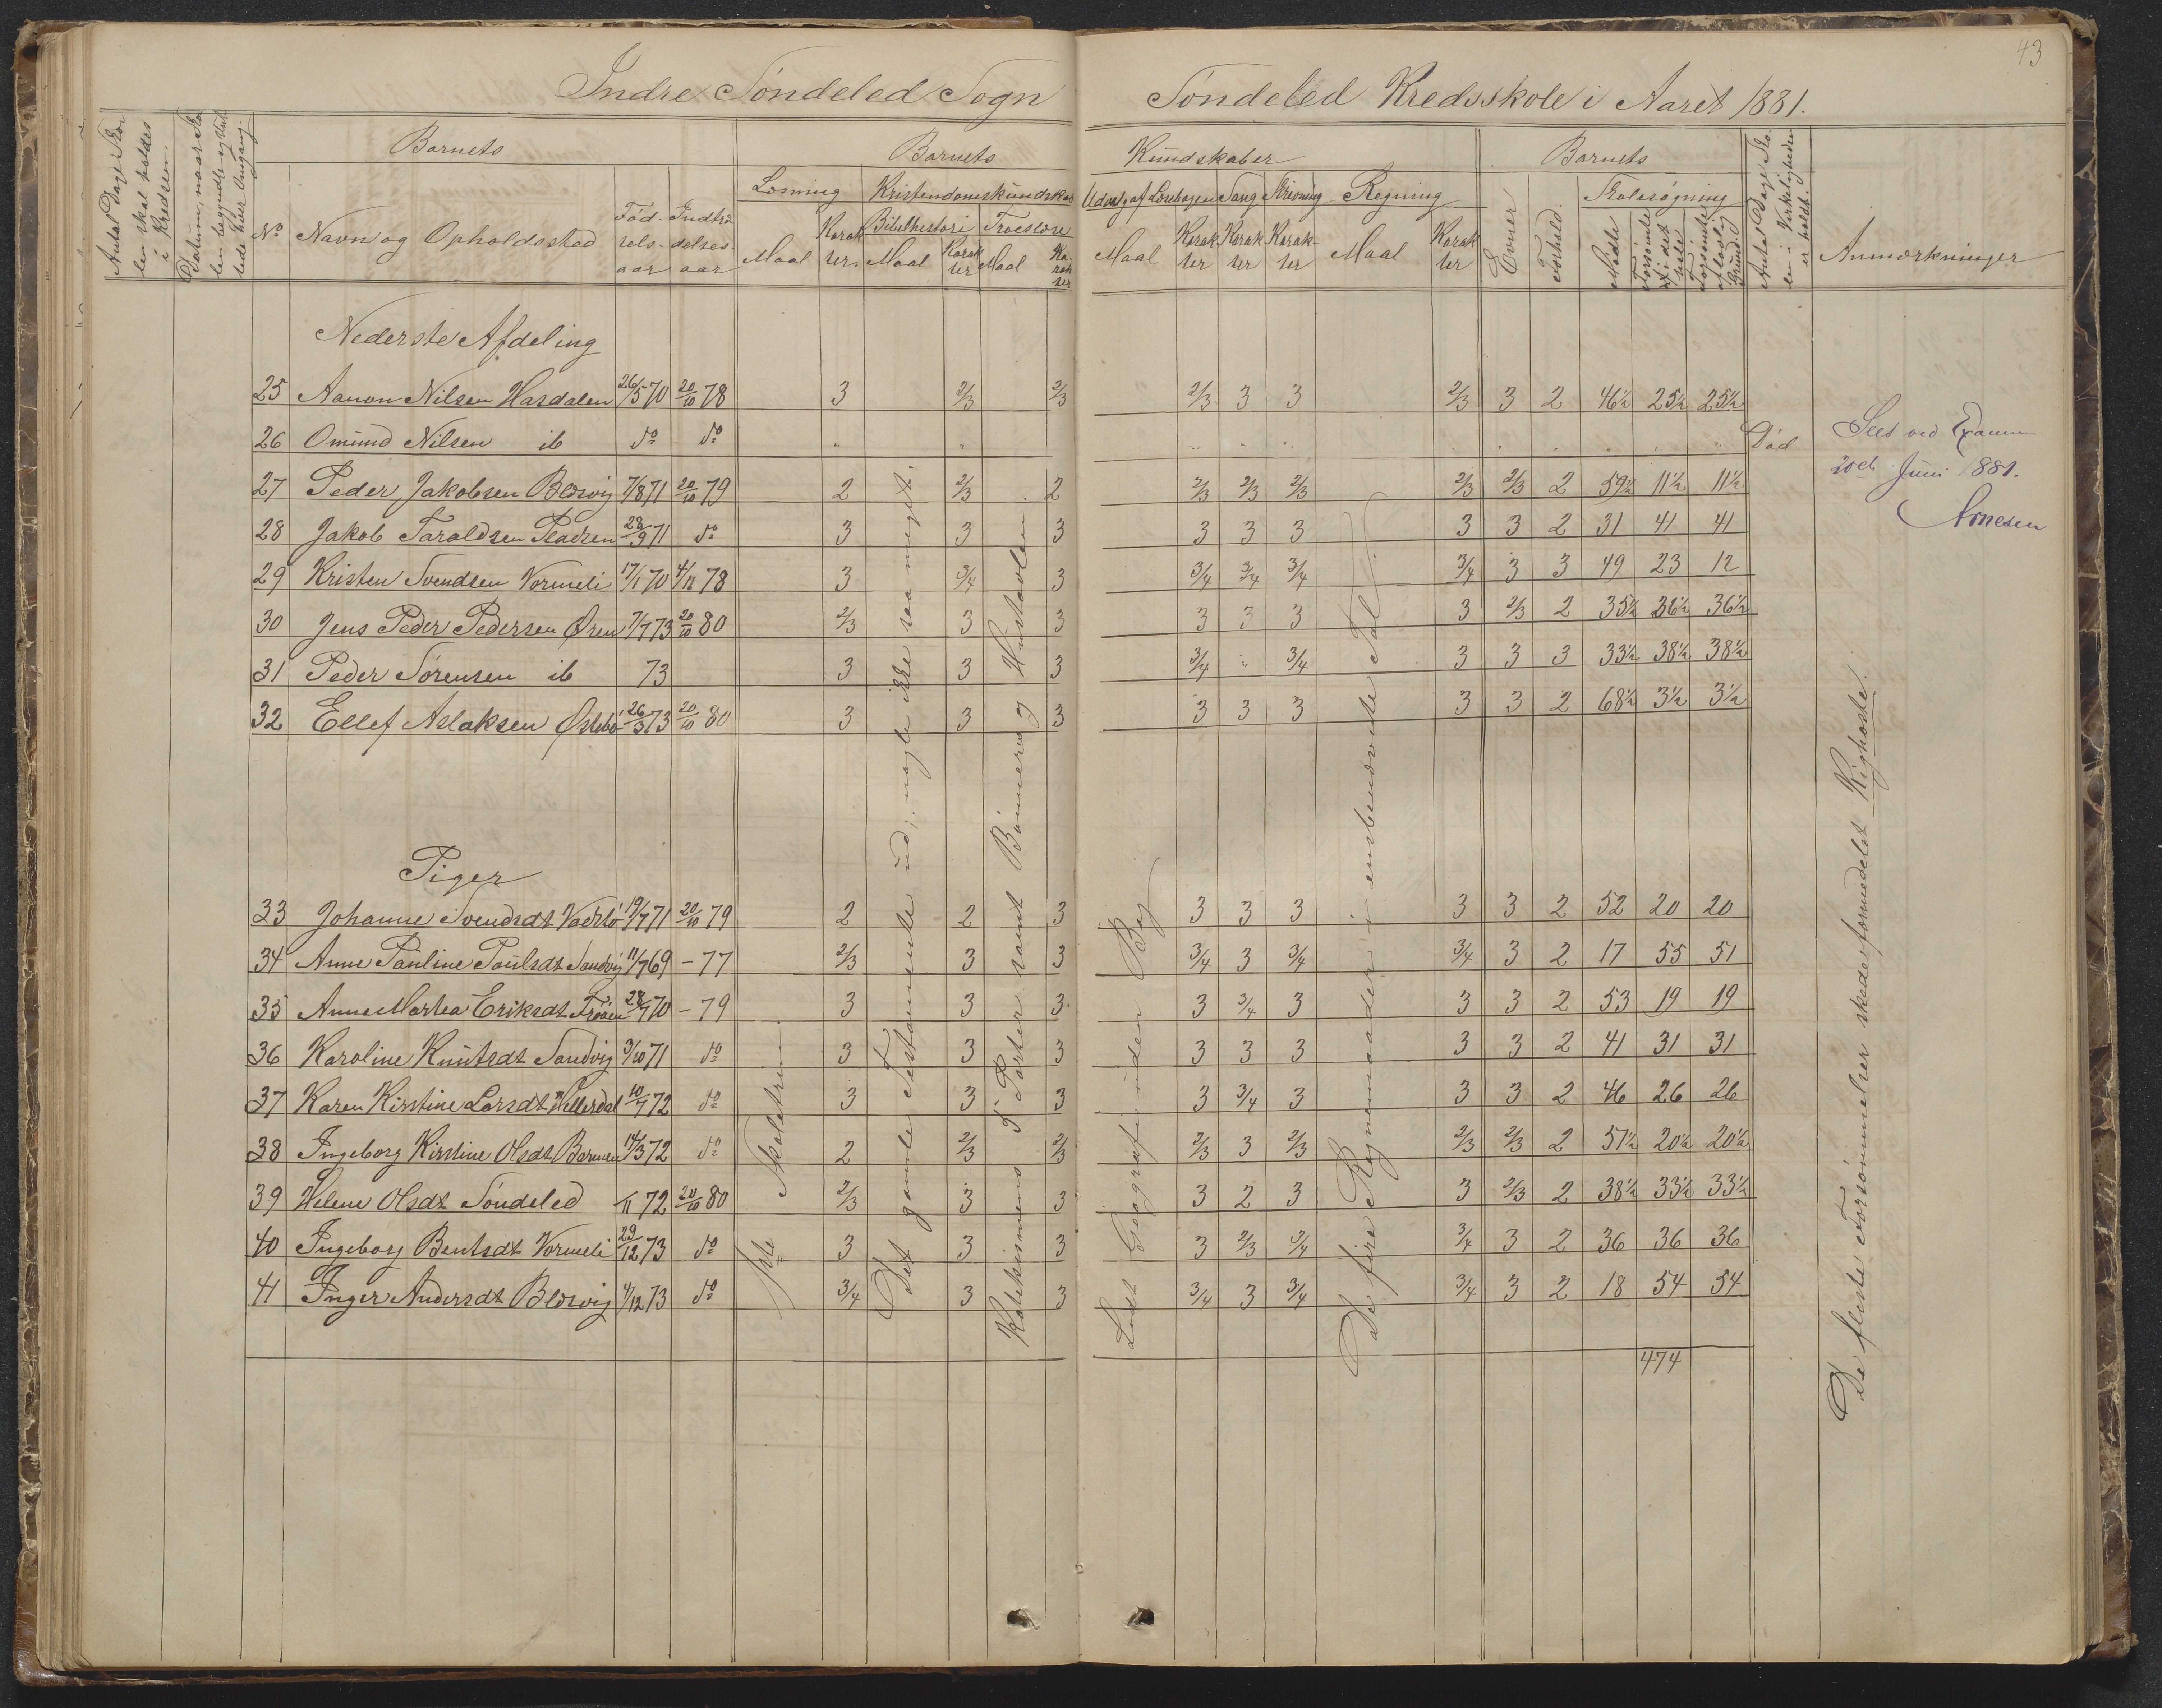 43
Indre Söndeled Sogn
Söndeled Kredsskole i Aaret 1881.
Antal Dage Skolen skal holdes i Kredsen.
Datum, naar Skolen begyndte og sluttede hver Omgang.
Barnets
Barnets
Kundskaber
Barnets
No
Navn og Opholdssted
Fødselsaar
Indtrædelsesaar
Læsning
Kristendomskundskab
Udvalg af Læsebogen
Sang
Skrivning
Regning
Evner
Forhold.
Skolesøgning
Bibelhistorie
Troeslære
Maal
Karakter.
Maal
Karakter
Maal
Karakter
Maal
Karakter
Karakter
Karakter
Maal
Karakter
Mödte
Forsömte i det hele
Forsömte af lovlig Grund
Antal Dage Skolen i Virkeligheden er holdt.
Anmærkninger
Nederste Afdeling
25 Aanon Nilsen Hasdalen 26/5 70 20/10 78 3 2/3 2/3 2/3 3 3 2/3 3 2 46½ 25½ 25½
26 Omund Nilsen ib do do " " " " " Död
27 Peder Jakobsen Blesvig 7/8 71 20/10 79 2 2/3 2 2/3 2/3 2/3 2/3 2/3 2 59½ 11½ 11½
28 Jakob Taraldsen 28/9 71 do 3 3 3 3 3 3 3 3 2 31 41 41
29 Kristen Svendsen Vormeli 17/1 70 4/11 78 3 3/4 3 3/4 3/4 3/4 3/4 3 3 49 23 12
30 Jens Peder Pedersen Øren 7/7 73 20/10 80 2/3 3 3 3 3 3 3 2/3 2 35½ 36½ 36½
31 Peder Sörensen ib 73 3 3 3 3/4 " 3/4 3 3 3 33½ 38½ 38½
32 Ellef Aslaksen Østebö 26/3 73 20/10 80 3 3 3 3 3 3 3 3 2 68½ 3½ 3½
Seet ved Examen
20de Juni 1881.
Arnesen
Piger
33 Johanne Svendsdt 19/7 71 20/10 79 2 2 3 3 3 3 3 3 2 52 20 20
34 Anne Pauline Paulsdt Sandvig 11/7 69 - 77 2/3 3 3 3/4 3 3/4 3/4 3 2 17 55 51
35 Anne Martea Eriksdt 28/7 70 - 79 3 3 3 3 3/4 3 3 3 2 53 19 19
36 Karoline Knutsdt Sandvig 3/10 71 do 3 3 3 3 3 3 3 3 2 41 31 31
37 Karen Kirstine Larsdt Hellerdal 10/7 72 do 3 3 3 3 3/4 3 3 3 2 46 26 26
38 Ingeborg Kirstine Olsdt 14/3 72 do 2 2/3 2/3 2/3 3 2/3 2/3 2/3 2 51½ 20½ 20½
39 Helene Olsdt Söndeled /11 72 20/10 80 2/3 3 3 3 2 3 3 2/3 2 38½ 33½ 33½
40 Ingeborg Bentsdt Vormeli 29/12 73 do 3 3 3 3 2/3 3/4 3/4 3 2 36 36 36
41 Inger Andersdt Blesvig 4/12 73 do 3/4 3 3 3/4 3 3/4 3/4 3 2 18 54 54
474
1ste Skoletrin.
Det gamle Testamente ud; nogle ikke saa meget.
Katekismens 5 Parter samt Bönnerne og Hustavlen
Lidt Geografi uden Bog
De fire Regnemaader i ensbenævnte Tal.
De fleste Forsömmelser skede formedelst Kighoste.